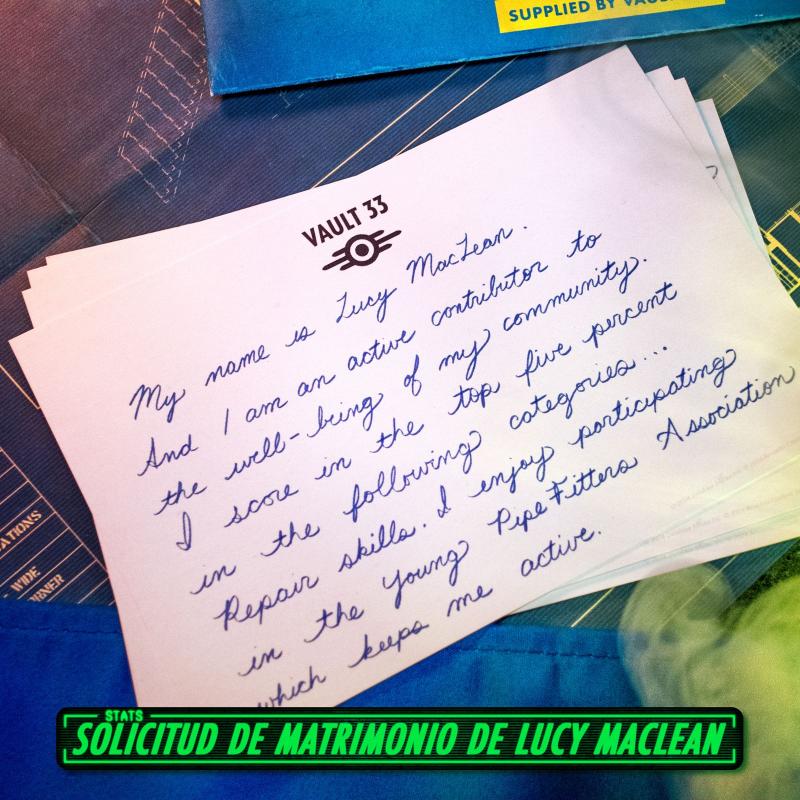 SUPPLIED BY
VAULT 33
My name is Lucy MacLean.
And I am an active contributor to
the well-being of my community.
I score in the top five percent
in the following categories...
Repair skills. I enjoy participating
in the young PipeFitters Association
which keeps me active.
WIDE
STATS
SOLICITUD DE MATRIMONIO DE LUCY MACLEAN